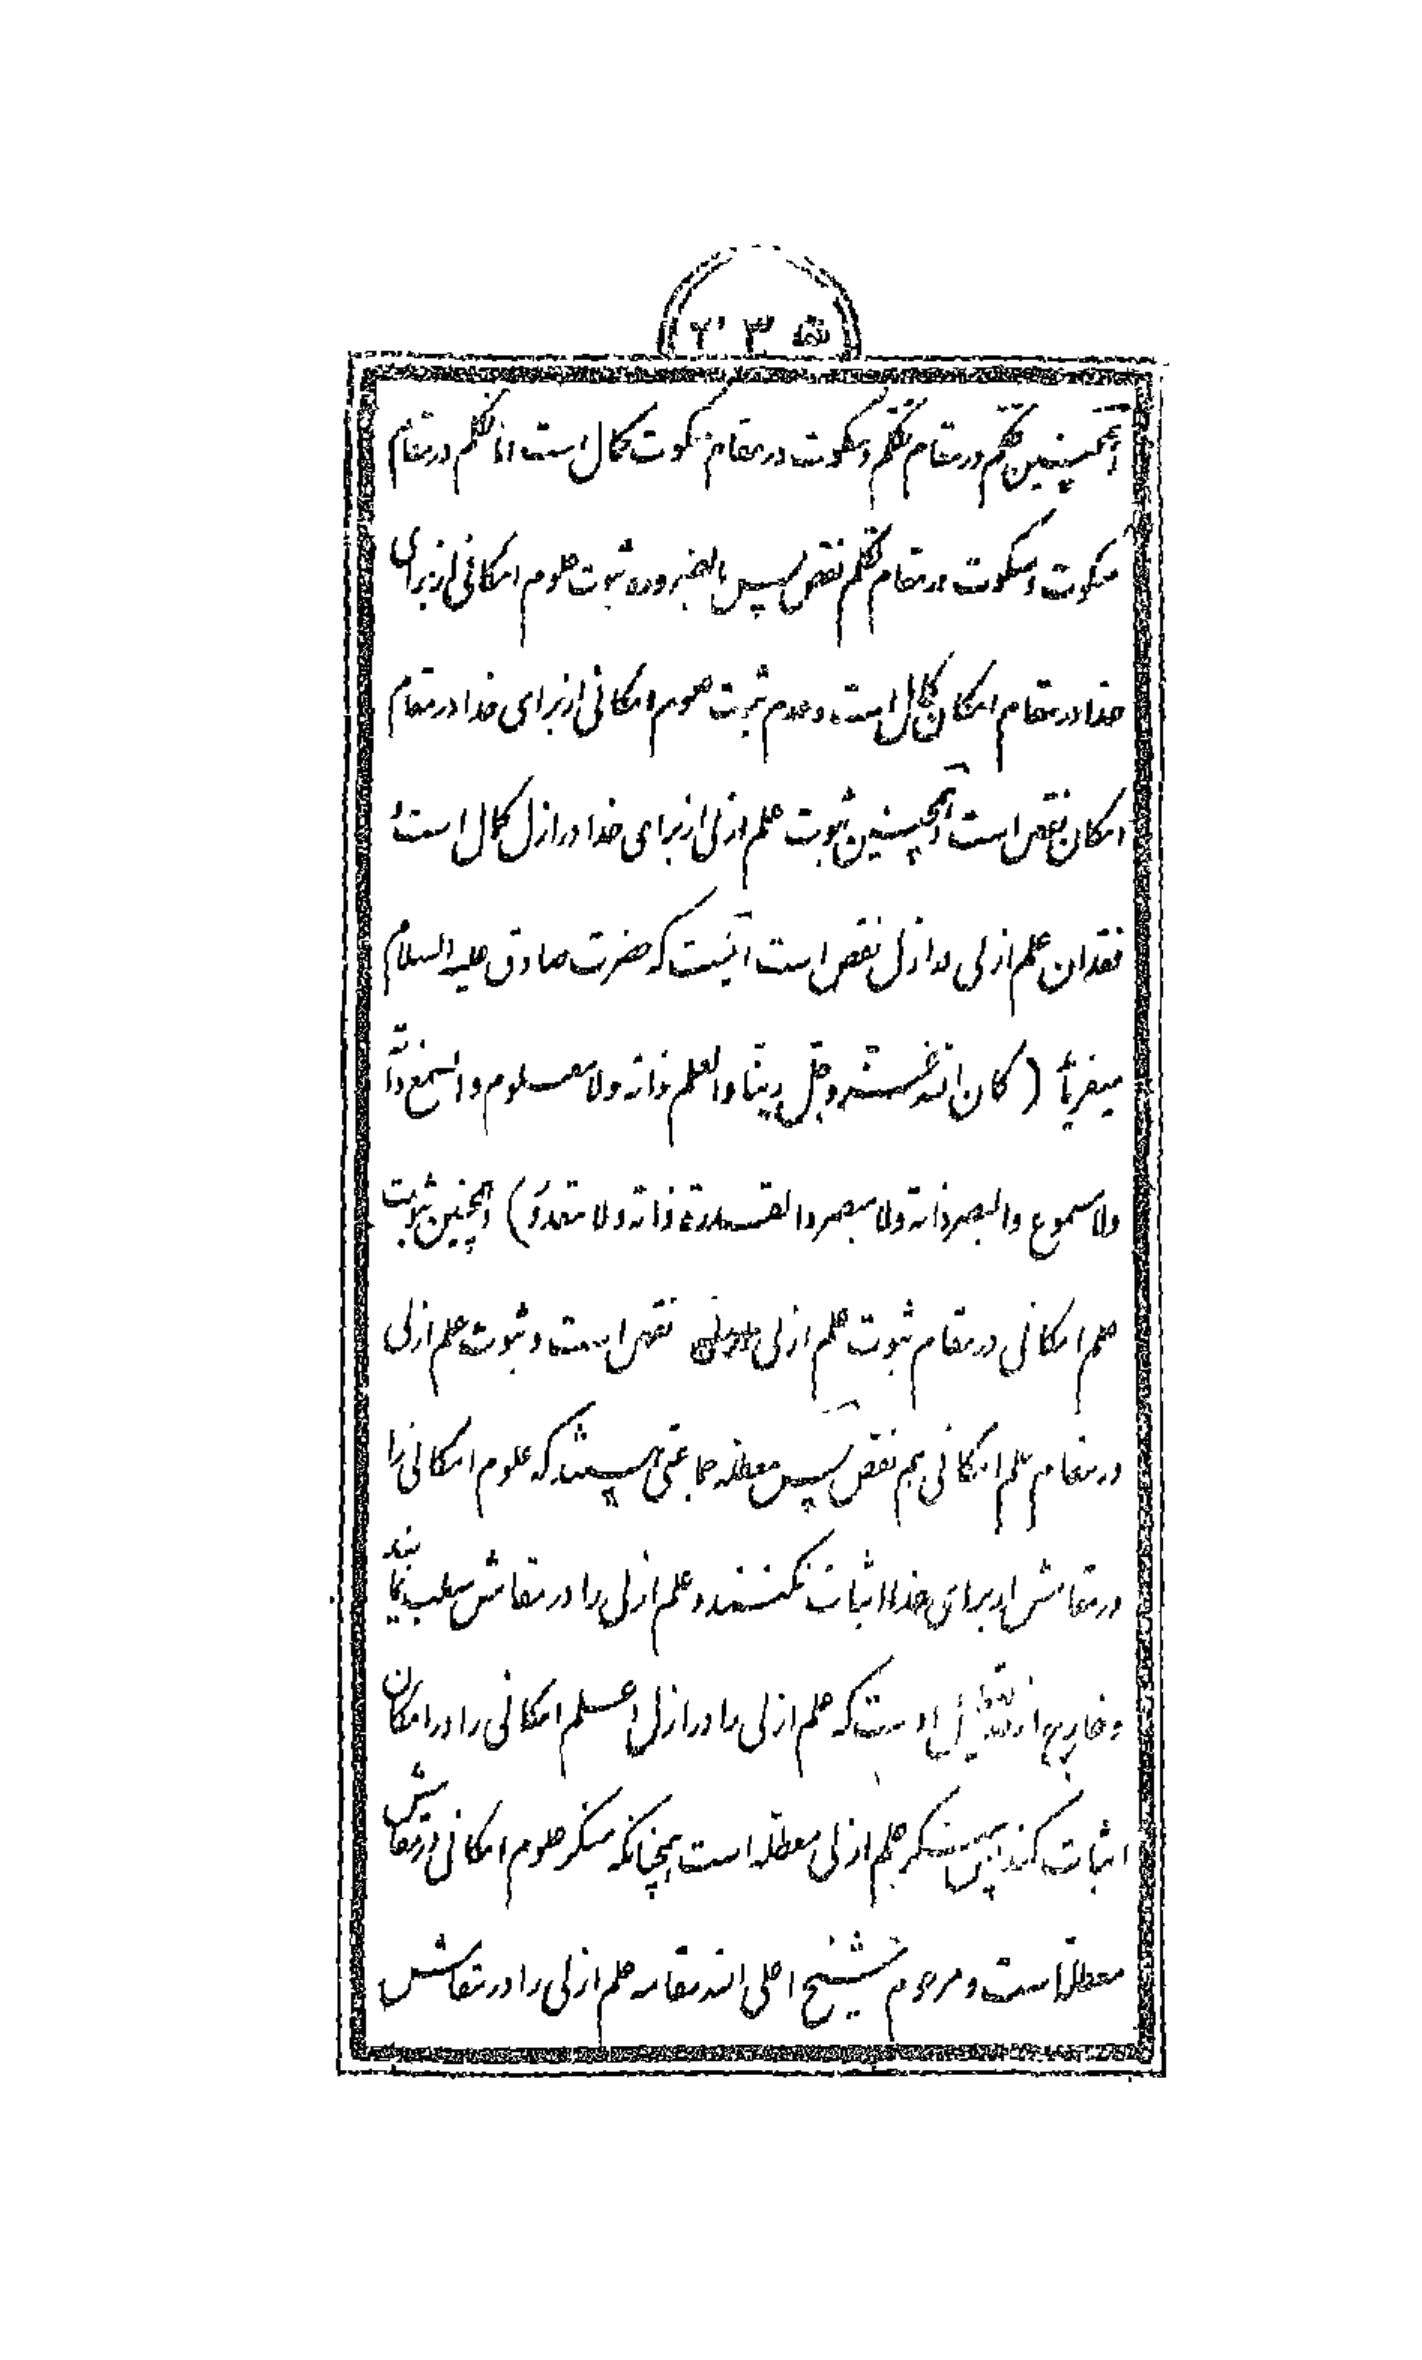 ۲۳۵
همچنین تکلم در مقام تکلم و سکوت در مقام سکوت کمال است اما تکلم در مقام
سکوت و سکوت در مقام تکلم نقص پس بالضروره ثبوت علوم امکانی از برای
خدا در مقام امکان کمال است و عدم ثبوت علوم امکانی از برای خدا در مقام
امکان نقص است همچنین ثبوت علم ازلی از برای خدا در ازل کمال است
فقدان علم ازلی در ازل نقص است اینست که حضرت صادق علیه السلام
میفرماید ( کان الله عز و جل ربنا والعلم ذاته ولا معلوم والسمع ذاته
ولا مسموع والبصر ذاته ولا مبصر والقدرة ذاته ولا مقدور ) همچنین ثبوت
علم امکانی در مقام ثبوت علم ازلی نقص است و ثبوت علم ازلی
در مقام علم امکانی هم نقص پس معطله جماعتی هستند که علوم امکانی را
در مقامش از برای خدا اثبات نکنند و علم ازلی را در مقامش سلب نمایند
و خارج از تعطیل است که علم ازلی را در ازل و علم امکانی را در امکان
اثبات کند پس منکر علم ازلی معطله است همچنانکه منکر علوم امکانی در مقامش
معطله است و مرحوم شیخ اعلی الله مقامه علم ازلی را در مقامش